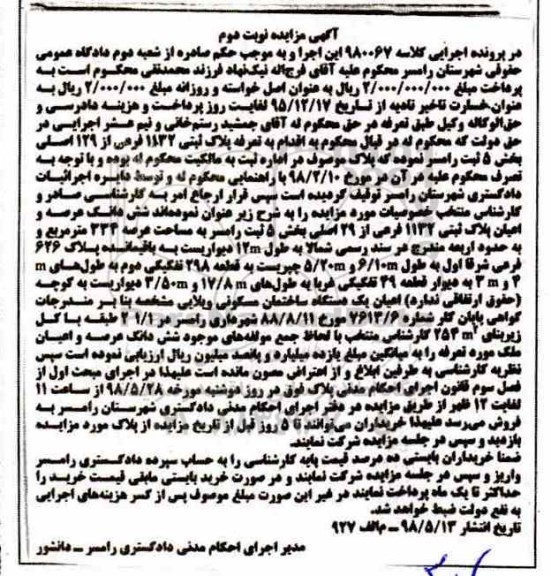 آگهی مزایده نوبت دوم
در پرونده اجرایی کلاسه ۹۸۰۰۶۷ این اجرا و به موجب حکم صادره از شعبه دوم دادگاه عمومی
حقوقی شهرستان رامسر محکوم علیه آقای فرج‌اله نیک‌نهاد فرزند محمدتقی محکوم است به
پرداخت مبلغ ۲/۰۰۰/۰۰۰/۰۰۰ ریال به عنوان اصل خواسته و روزانه مبلغ ۲/۰۰۰/۰۰۰ ریال به
عنوان خسارت تاخیر تادیه از تاریخ ۹۵/۱۲/۱۷ لغایت روز پرداخت و هزینه دادرسی و
حق‌الوکاله وکیل طبق تعرفه در حق محکوم له آقای جمشید رستم‌خانی و نیم عشر اجرایی در
حق دولت که محکوم له در قبال محکوم به اقدام به تعرفه پلاک ثبتی ۱۱۳۲ فرعی از ۱۲۹ اصلی
بخش ۵ ثبت رامسر نموده که پلاک موصوف در اداره ثبت به مالکیت محکوم له بوده و با توجه به
تصرف محکوم علیه در آن در مورخ ۹۸/۲/۱۰ با راهنمایی محکوم له و توسط دایره اجرائیات
دادگستری شهرستان رامسر توقیف گردیده است سپس قرار ارجاع امر به کارشناسی صادر و
کارشناس منتخب خصوصیات مورد مزایده را به شرح زیر عنوان نموده‌اند شش دانگ عرصه و
اعیان پلاک ثبتی ۱۱۳۲ فرعی از ۲۹ اصلی بخش ۵ ثبت رامسر به مساحت عرصه ۳۳۳ مترمربع و
به حدود اربعه مندرج در سند رسمی شمالا به طول ۱۲m دیواریست به باقیمانده پلاک ۶۲۶
فرعی شرقا اول به طول ۶/۱۰m و ۵/۲۰m چپریست به قطعه ۲۹۸ تفکیکی دوم به طول‌های m
۴ و ۳ m به دیوار قطعه ۳۹ تفکیکی غربا به طول‌های ۱۷/۸ m و ۳/۵۰m دیواریست به کوچه
(حقوق ارتفاقی ندارد) اعیان یک دستگاه ساختمان مسکونی ویلایی مشخصه بنا بر مندرجات
گواهی پایان کار شماره ۷۶۱۳/۶ مورخ ۸۸/۸/۱۱ شهرداری رامسر در ۲۰۱/۱ طبقه با کل
زیربنای ۲۵۴ m² کارشناس منتخب با لحاظ جمع مولفه‌های موجود شش دانگ عرصه و اعیان
ملک مورد تعرفه را به میانگین مبلغ یازده میلیارد و پانصد میلیون ریال ارزیابی نموده است سپس
نظریه کارشناسی به طرفین ابلاغ و از اعتراض مصون مانده است علیهذا در اجرای مبحث اول از
فصل سوم قانون اجرای احکام مدنی پلاک فوق در روز دوشنبه مورخه ۹۸/۵/۲۸ از ساعت ۱۱
لغایت ۱۲ ظهر از طریق مزایده در دفتر اجرای احکام مدنی دادگستری شهرستان رامسر به
فروش می‌رسد علیهذا خریداران می‌توانند تا ۵ روز قبل از تاریخ مزایده از پلاک مورد مزایده
بازدید و سپس در جلسه مزایده شرکت نمایند.
ضمنا خریداران بایستی ده درصد قیمت پایه کارشناسی را به حساب سپرده دادگستری رامسر
واریز و سپس در جلسه مزایده شرکت نمایند و در صورت خرید بایستی مابقی قیمت خرید را
حداکثر تا یک ماه پرداخت نمایند در غیر این صورت مبلغ موصوف پس از کسر هزینه‌های اجرایی
به نفع دولت ضبط خواهد شد.
تاریخ انتشار ۹۸/۵/۱۳ ــ م‌الف ۹۲۷
مدیر اجرای احکام مدنی دادگستری رامسر ــ دانشور